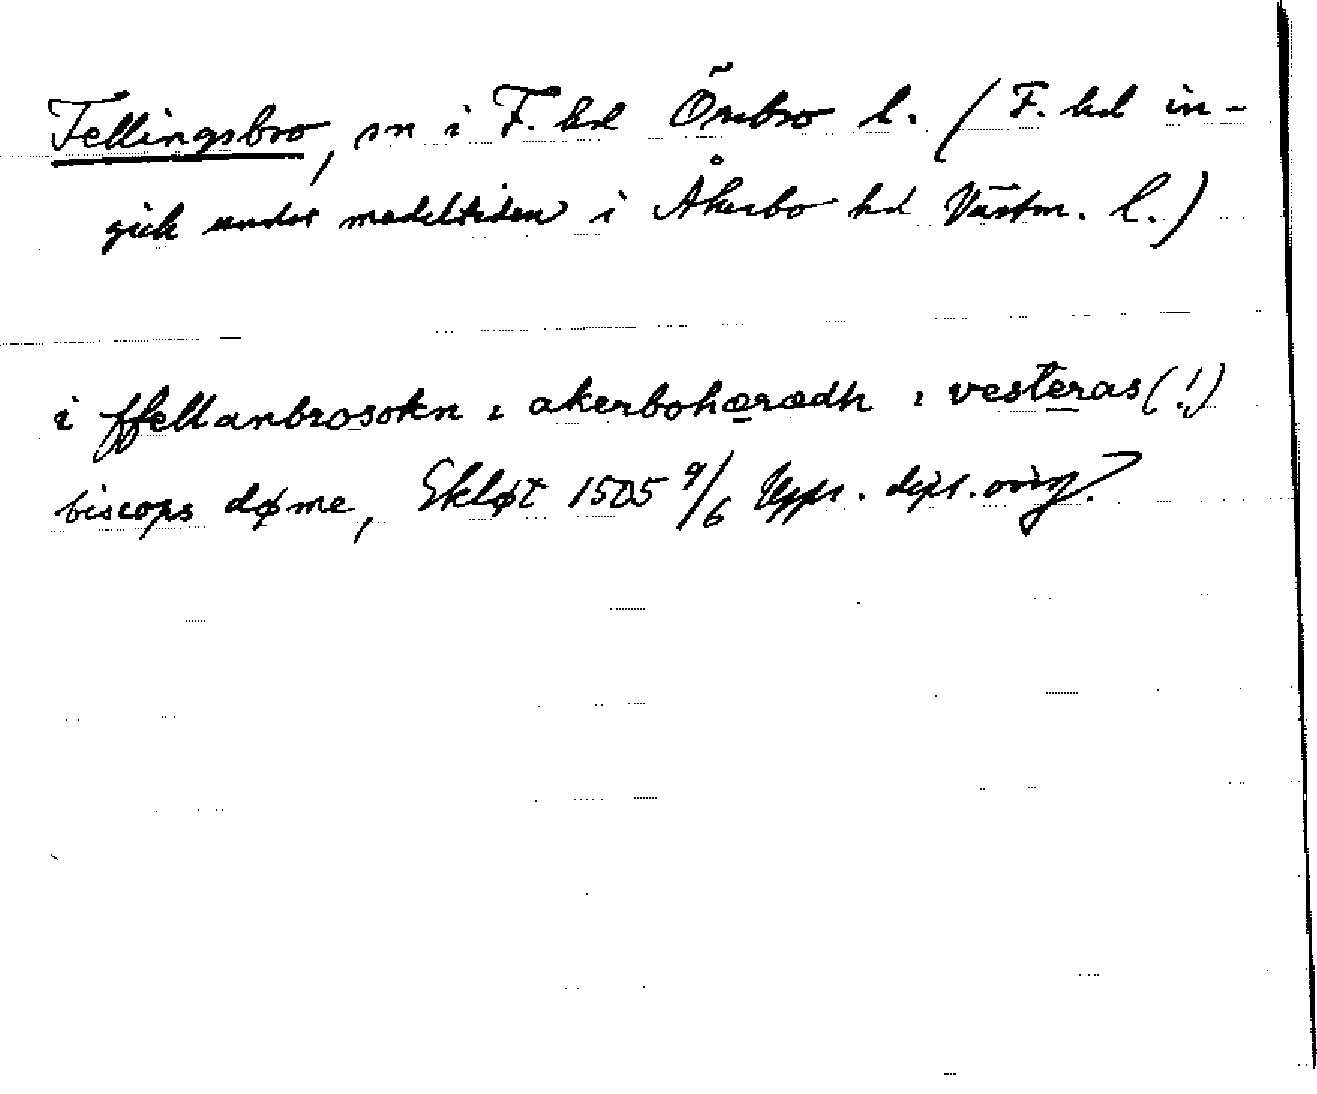 Fellingsbro, sn i F. hd Örebro l. (F. hd in-
gick under medeltiden i Åkerbo hd Västm. l.)
i ffellanbrosokn i akerbohæradh i vesteras(!)
biscops døme, Ekløt 1505 9/6 Upps. dipl. orig.